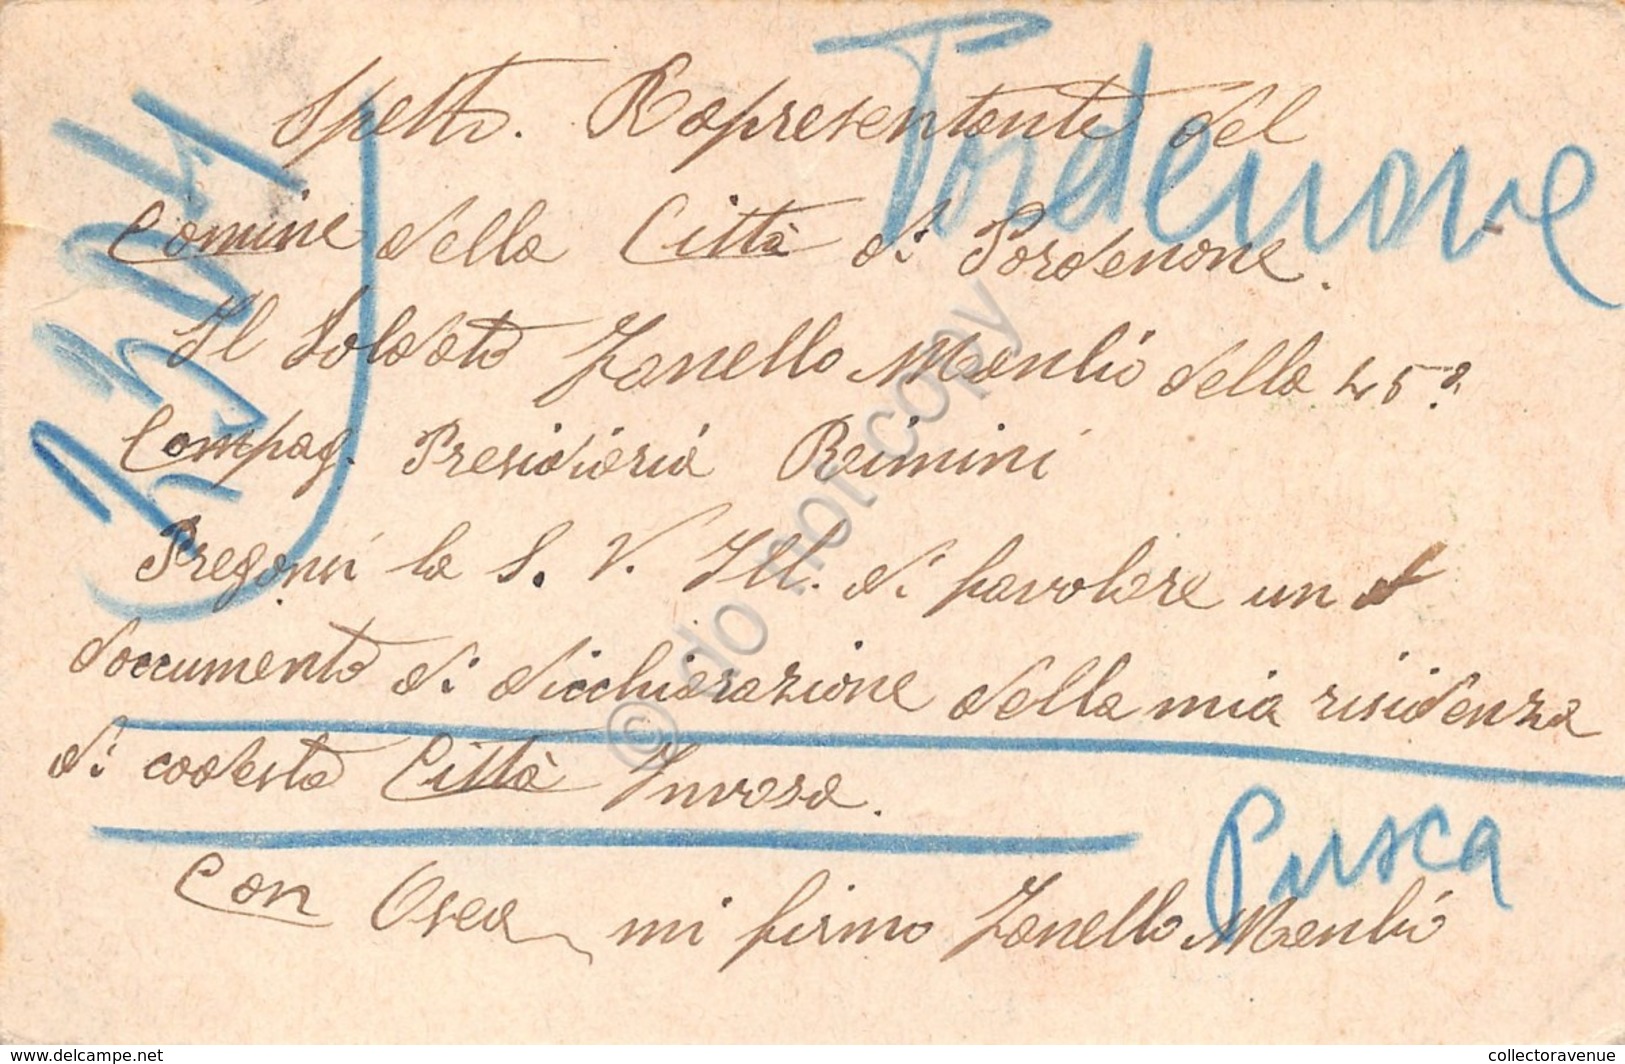 Spetto. Rapresentante del
Pordenone
Comine della Città di Pordenone.
Il Soldato Zanello Manlio della 45ª
Compag. Presidiaria Reimini
Pregovi la S. V. Ill. di favolere un
documento di dicchiarazione della mia risidenza
di codesta Città Invasa.
Pursca
Con Osea mi firmo Zanello Manlio
© do not copy
www.delcampe.net
collectoravenue